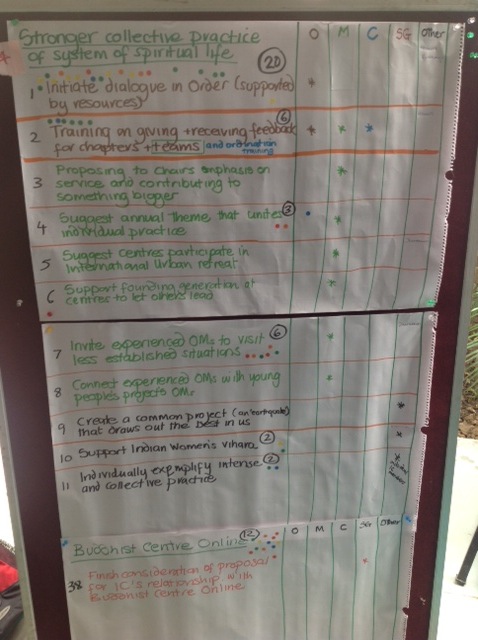 Stronger collective practice
of system of spiritual life
O M C SG Other
20
1 Initiate dialogue in Order (supported
by resources)
6
2 Training on giving + receiving feedback
for chapters + teams and ordination
training
3 Proposing to Chairs emphasis on
service and contributing to
something bigger
3
4 Suggest annual theme that unites
individual practice
5 Suggest centres participate in
International Urban retreat
6 Support founding generation at
centres to let others lead
7 Invite experienced OMs to visit 6
less established situations
8 Connect experienced OMs with young
people's projects OMs
9 Create a common project (an 'earthquake')
that draws out the best in us
10 Support Indian Women's Vihara 2
11 Individually exemplify intense 2
and collective practice
Buddhist Centre Online 12
O M C SG Other
38 Finish consideration of proposal
for IC's relationship with
Buddhist Centre Online